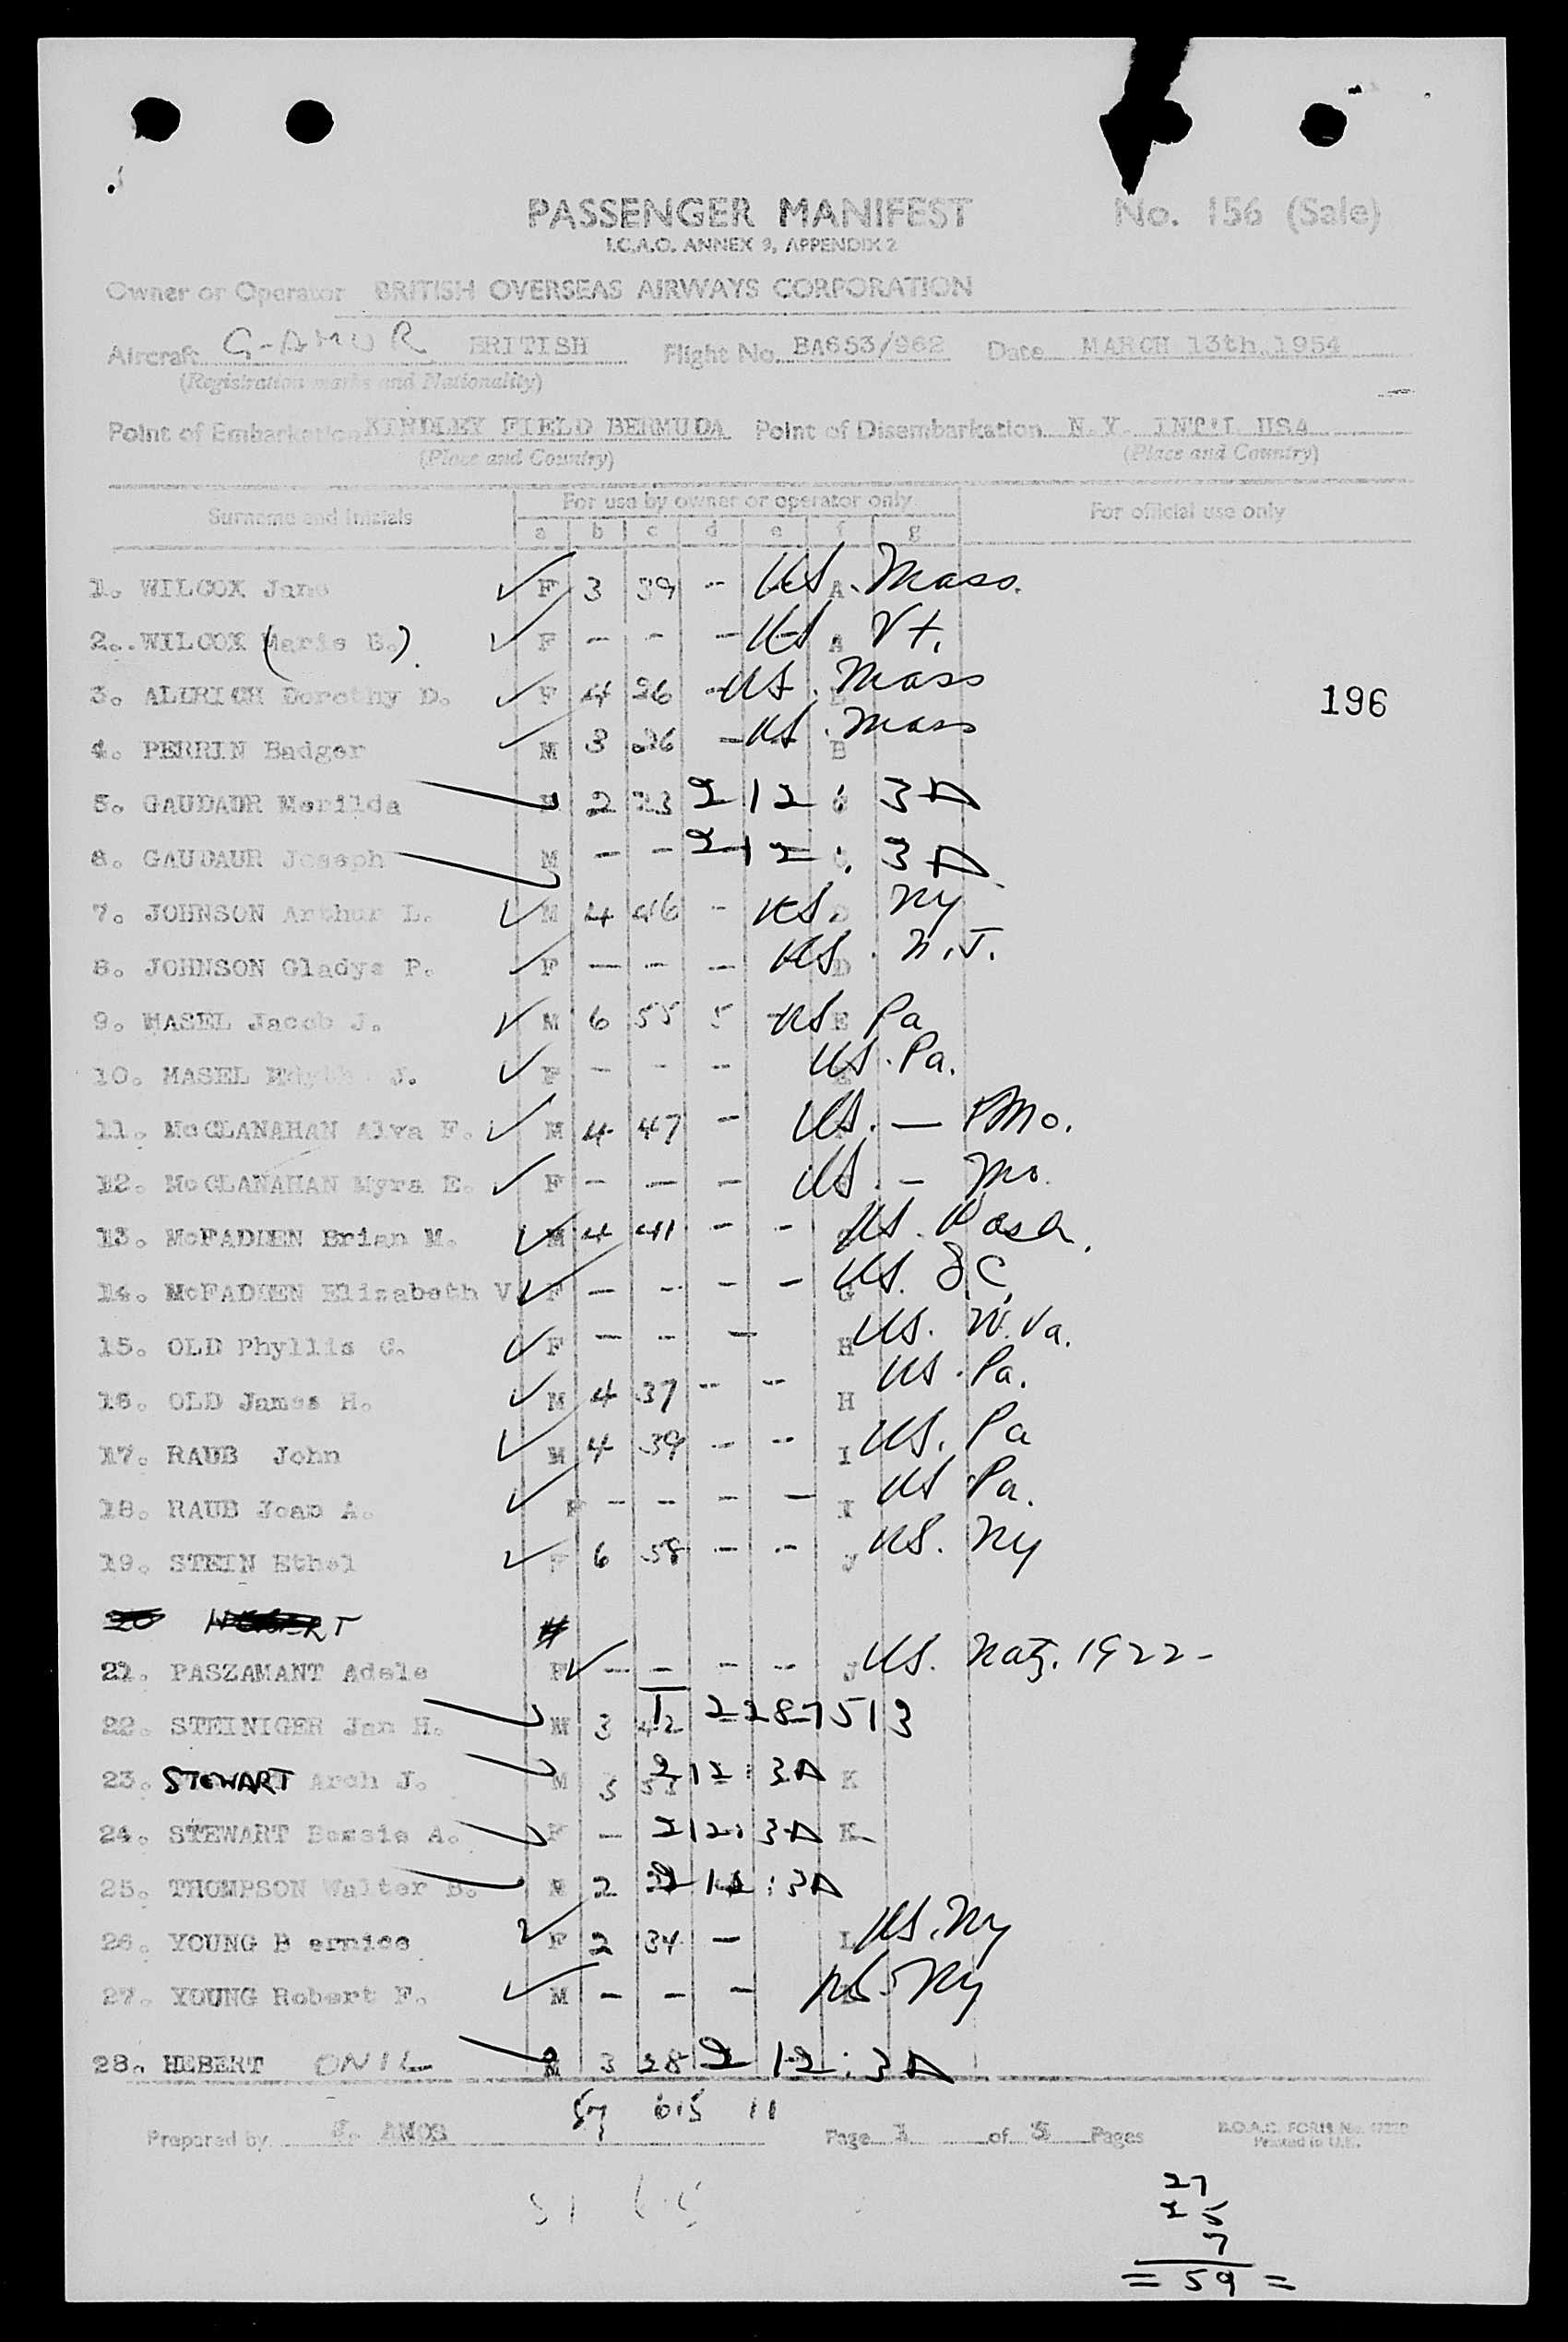 PASSENGER MANIFEST No. 156 (Sale)
I.C.A.O. ANNEX 9, APPENDIX 2
Owner or Operator BRITISH OVERSEAS AIRWAYS CORPORATION
Aircraft G-AMUR BRITISH Flight No. BA653/962 Date MARCH 13th,1954
(Registration marks and Nationality)
Point of Embarkation KINDLEY FIELD BERMUDA Point of Disembarkation N.Y. INT'L USA
(Place and Country) (Place and Country)
For use by owner or operator only
Surname and Initials For official use only
a b c d e f g
1. WILCOX Jane F 3 39 - US A. Mass.
2. WILCOX (Marie B.) F - - - - US A Vt.
3. ALDRICH Dorothy D. F 4 26 - US. Mass
196
4. PERRIN Badger M 3 26 - US. Mass B
5. GAUDAUR Merilda 2 23 212: 3A
6. GAUDAUR Joseph M - - 212: 3A
7. JOHNSON Arthur L. M 4 46 - US. D NY
8. JOHNSON Gladys P. F - - - US. D N.J.
9. MASEL Jacob J. M 6 55 5 - US E Pa
10. MASEL J. F - - - US. Pa.
11. McCLANAHAN Alva F. M 4 47 - US. - Mo.
12. McCLANAHAN Myra E. F - - - US. - Mo.
13. McFADDEN Brian M. M 4 41 - - US. Wash.
14. McFADDEN Elizabeth V. F - - - - US. G SC.
15. OLD Phyllis C. F - - - H US. W.Va.
16. OLD James H. M 4 37 - - H US. Pa.
17. RAUB John M 4 39 - - I US. Pa
18. RAUB Joan A. F - - - - I US Pa.
19. STEIN Ethel F 6 58 - - J US. NY
20
21. PASZAMANT Adele F - - - - J US. Natz. 1922-
22. STEINIGER Jan H. M 3 42 1 2287513
23. STEWART Arch J. M 5 53 212: 3A K
24. STEWART Bessie A. F - 212: 3A K
25. THOMPSON Walter B. M 2 212: 3A
26. YOUNG B ernice F 2 34 - L US. NY
27. YOUNG Robert F. M - - - US. NY
28. HEBERT ONIL M 3 28 212: 3A
57 615 11
Prepared by AMOS Page 1 of 3 Pages B.O.A.C. FORM No.
Printed in U.K.
51 615
27
25
7
= 59 =